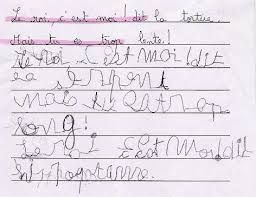 Le roi, c'est moi ! dit la tortue.
Mais tu es trop lente !
Le roi, c'est moi dit
serpent
mais tu trop
long !
Le roi c'est moi dit